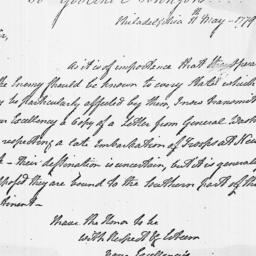 Philadelphia May 1779
As it is of importance that
the Enemy should be known to every State which
be particularly affected by them, I now transmit
Excellency a Copy of a Letter from General Wash
respecting a late Embarkation of Troops at New
Their destination is uncertain, but it is general
posed they are bound to the Southern part of th
tinent
I have the Honor to be
With Respect & Esteem
Your Excellency's